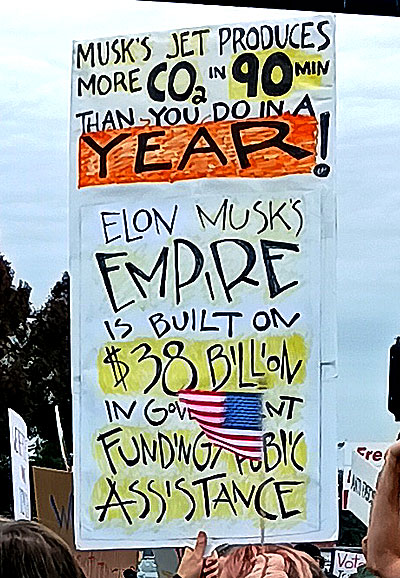 MUSK'S JET PRODUCES
MORE CO₂ IN 90 MIN
THAN YOU DO IN A
YEAR!
ELON MUSK'S
EMPIRE
IS BUILT ON
$38 BILLION
IN
FUNDING/
ASSISTANCE
Vote